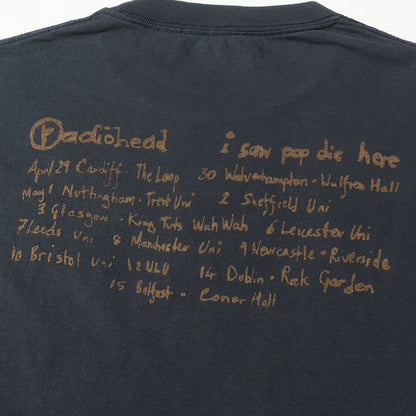 Radiohead i saw pop die here
April 29 Cardiff. The Loop 30 Wolverhampton - Wulfren Hall
May 1 Nottingham - Trent Uni 2 Sheffield Uni
3 Glasgow - King Tuts Wah Wah 6 Leicester Uni
7 Leeds Uni 8 Manchester Uni 9 Newcastle - Riverside
10 Bristol Uni 12 14 Dublin - Rock Garden
15 Belfast - Conor Hall